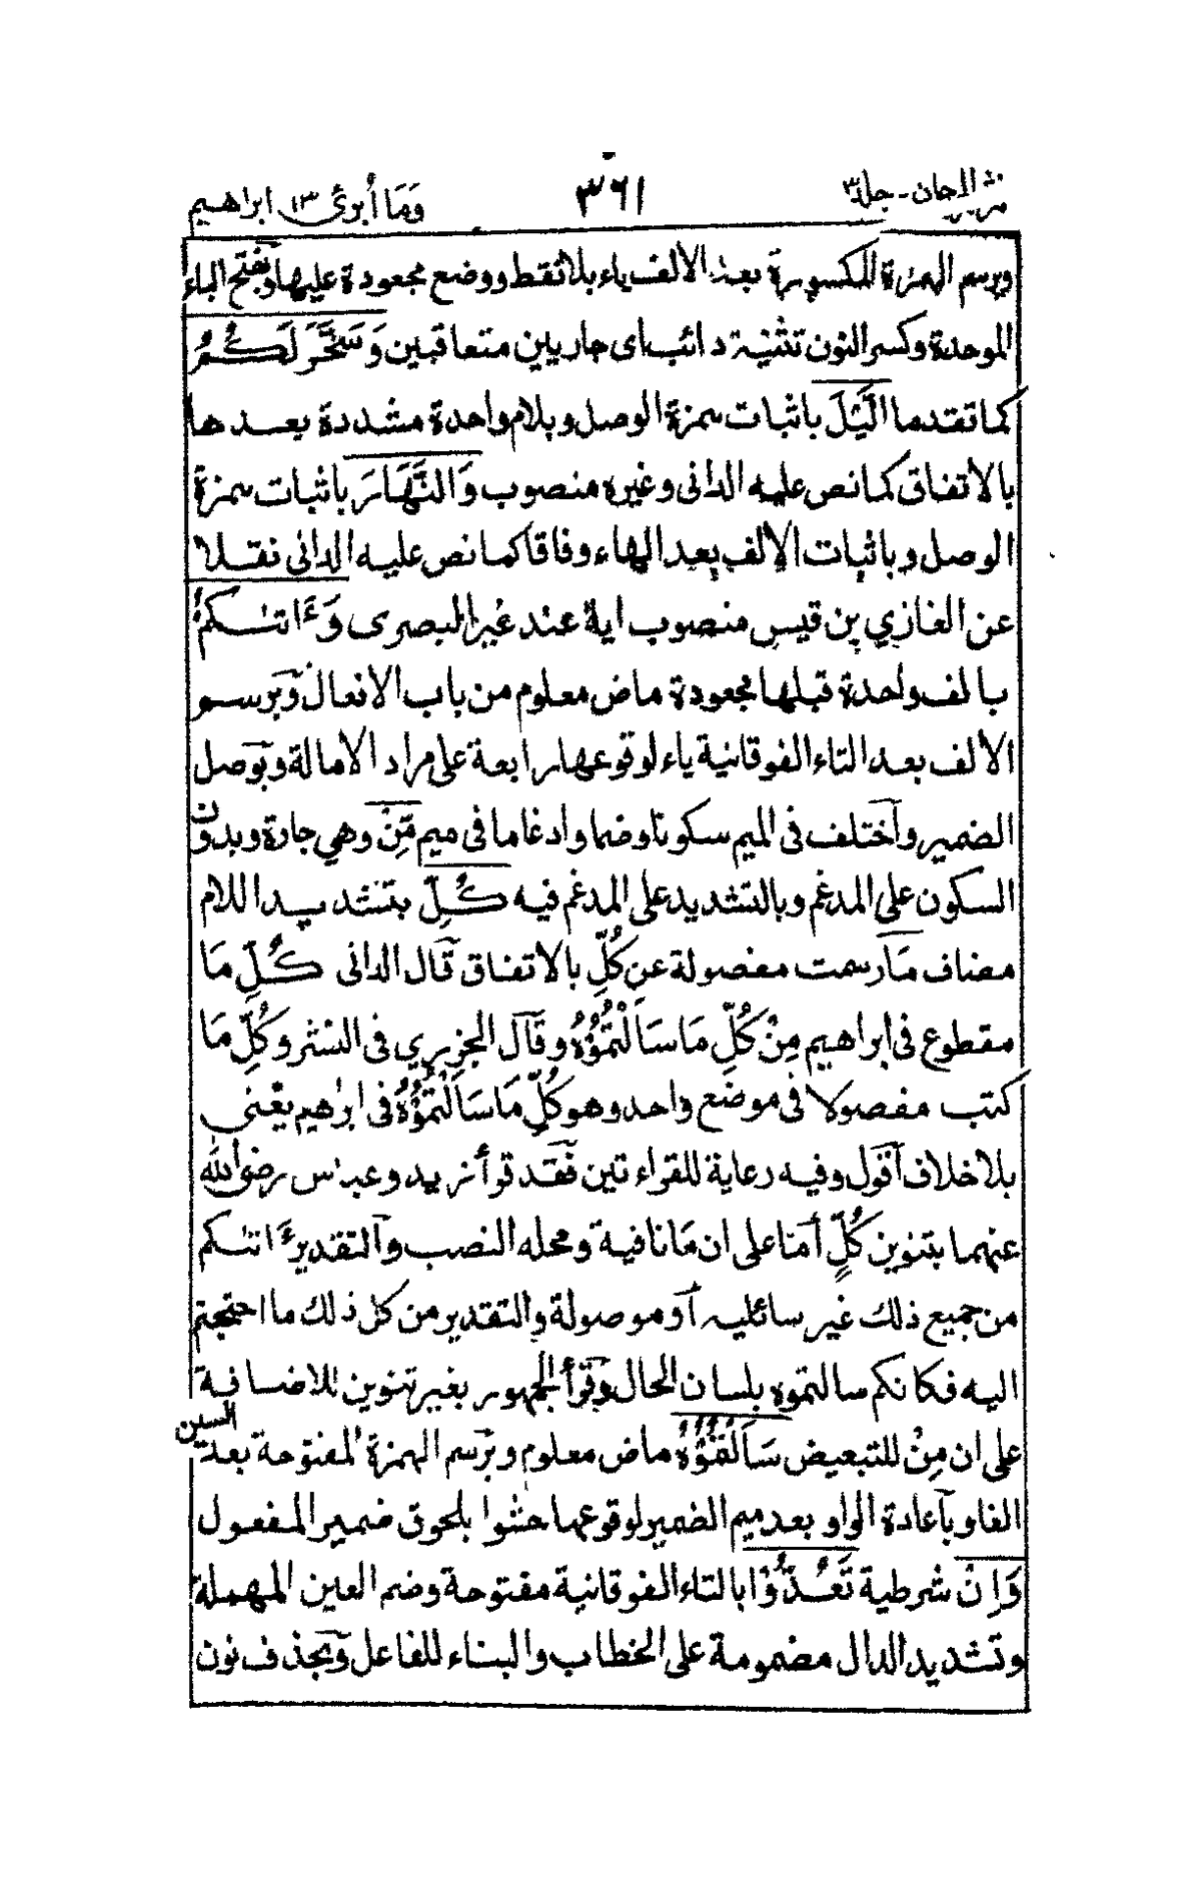 نثر المرجان - جلد ٣ ٣٦١ وَمَا أُبرئ ١٣ ابراهيم
وبرسم الهمزة المكسورة بعد الالف ياء بلا نقط ووضع مجعودة عليها وبفتح الباء
الموحدة وكسر النون تثنية دائب اى جاريين متعاقبين وَسَخَّرَ لَكُمُ
كما تقدما الَّيْلَ باثبات همزة الوصل وبلام واحدة مشددة بعدها
بالاتفاق كما نص عليه الدانى وغيره منصوب وَالنَّهَارَ باثبات همزة
الوصل وباثبات الالف بعد الهاء وفاقا كما نص عليه الدانى نقلا
عن الغازي بن قيس منصوب اية عند غير البصرى وَءَاتىٰكم
بالف واحدة قبلها مجعودة ماض معلوم من باب الافعال وبرسم
الالف بعد التاء الفوقانية ياء لوقوعها رابعة على مراد الامالة وبوصل
الضمير واختلف فى الميم سكونا وضما وادغاما فى ميم مِّنْ وهي جارة وبدون
السكون على المدغم وبالتشديد على المدغم فيه كُلِّ بتشديد اللام
مضاف مَا رسمت مفصولة عن كُلِّ بالاتفاق قال الدانى كُلِّ مَا
مقطوع فى ابراهيم مِنْ كُلِّ مَا سَاَلْتُمُوْهُ وقال الجزري فى النشر وكُلِّ مَا
كتب مفصولا فى موضع واحد وهو كُلِّ مَا سَاَلْتُمُوْهُ فى ابرٰهيم يعنى
بلا خلاف اقول وفيه رعاية للقراءتين فقد قرأ زيد وعباس رضى الله
عنهما بتنوين كُلٍّ أما على ان مَا نافية ومحله النصب والتقدير ءَاتىٰكم
من جميع ذلك غير سائليه أو موصولة والتقدير من كل ذلك ما احتجتم
اليه فكانكم سالتموه بلسان الحال وقرأ الجمهور بغير تنوين للاضافة
على ان مِنْ للتبعيض سَاَلْتُمُوْهُ ماض معلوم وبرسم الهمزة المفتوحة بعد السين
الفا وباعادة الواو بعد ميم الضمير لوقوعها حشوا بلحوق ضمير المفعول
وَاِنْ شرطية تَعُدُّوْا بالتاء الفوقانية مفتوحة وضم العين المهملة
وتشديد الدال مضمومة على الخطاب والبناء للفاعل وبحذف نون